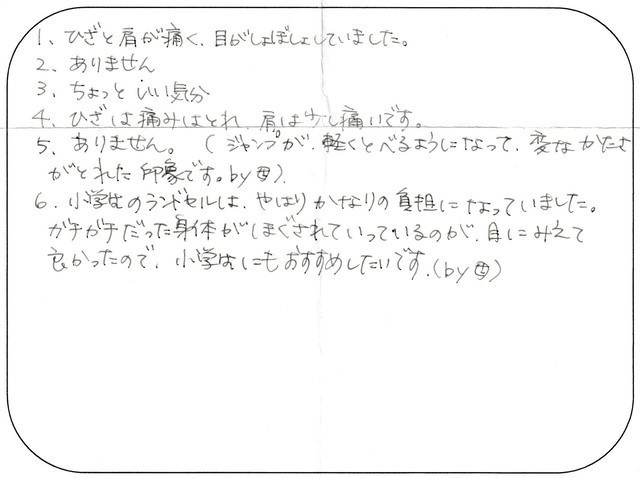 1、ひざと肩が痛く、目がしょぼしょぼしていました。
2、ありません
3、ちょっといい気分
4、ひざは痛みはとれ、肩は少し痛いです。
5、ありません。(ジャンプが、軽くとべるようになって、変なかたさ
がとれた印象です。by母)
6、小学生のランドセルは、やはりかなりの負担になっていました。
ガチガチだった身体がほぐされていっているのが、目にみえて
良かったので、小学生にもおすすめしたいです。(by母)